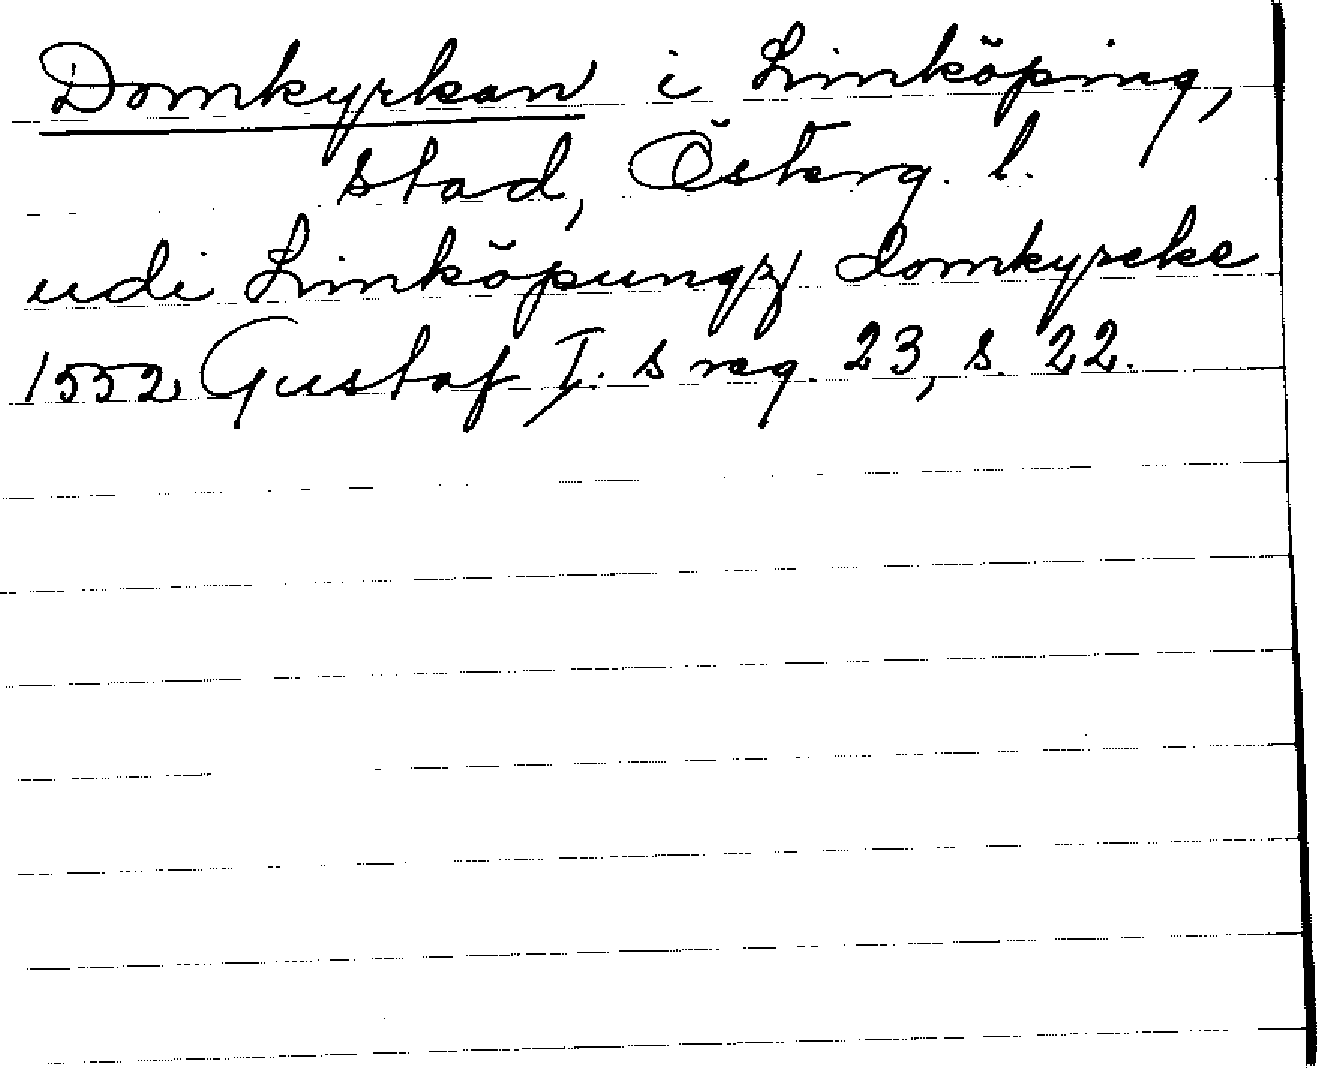 Domkyrkan i Linköping,
stad, Österg. l.
udi Linköpungz domkyrcke
1552 Gustaf I. s reg. 23, s. 22.